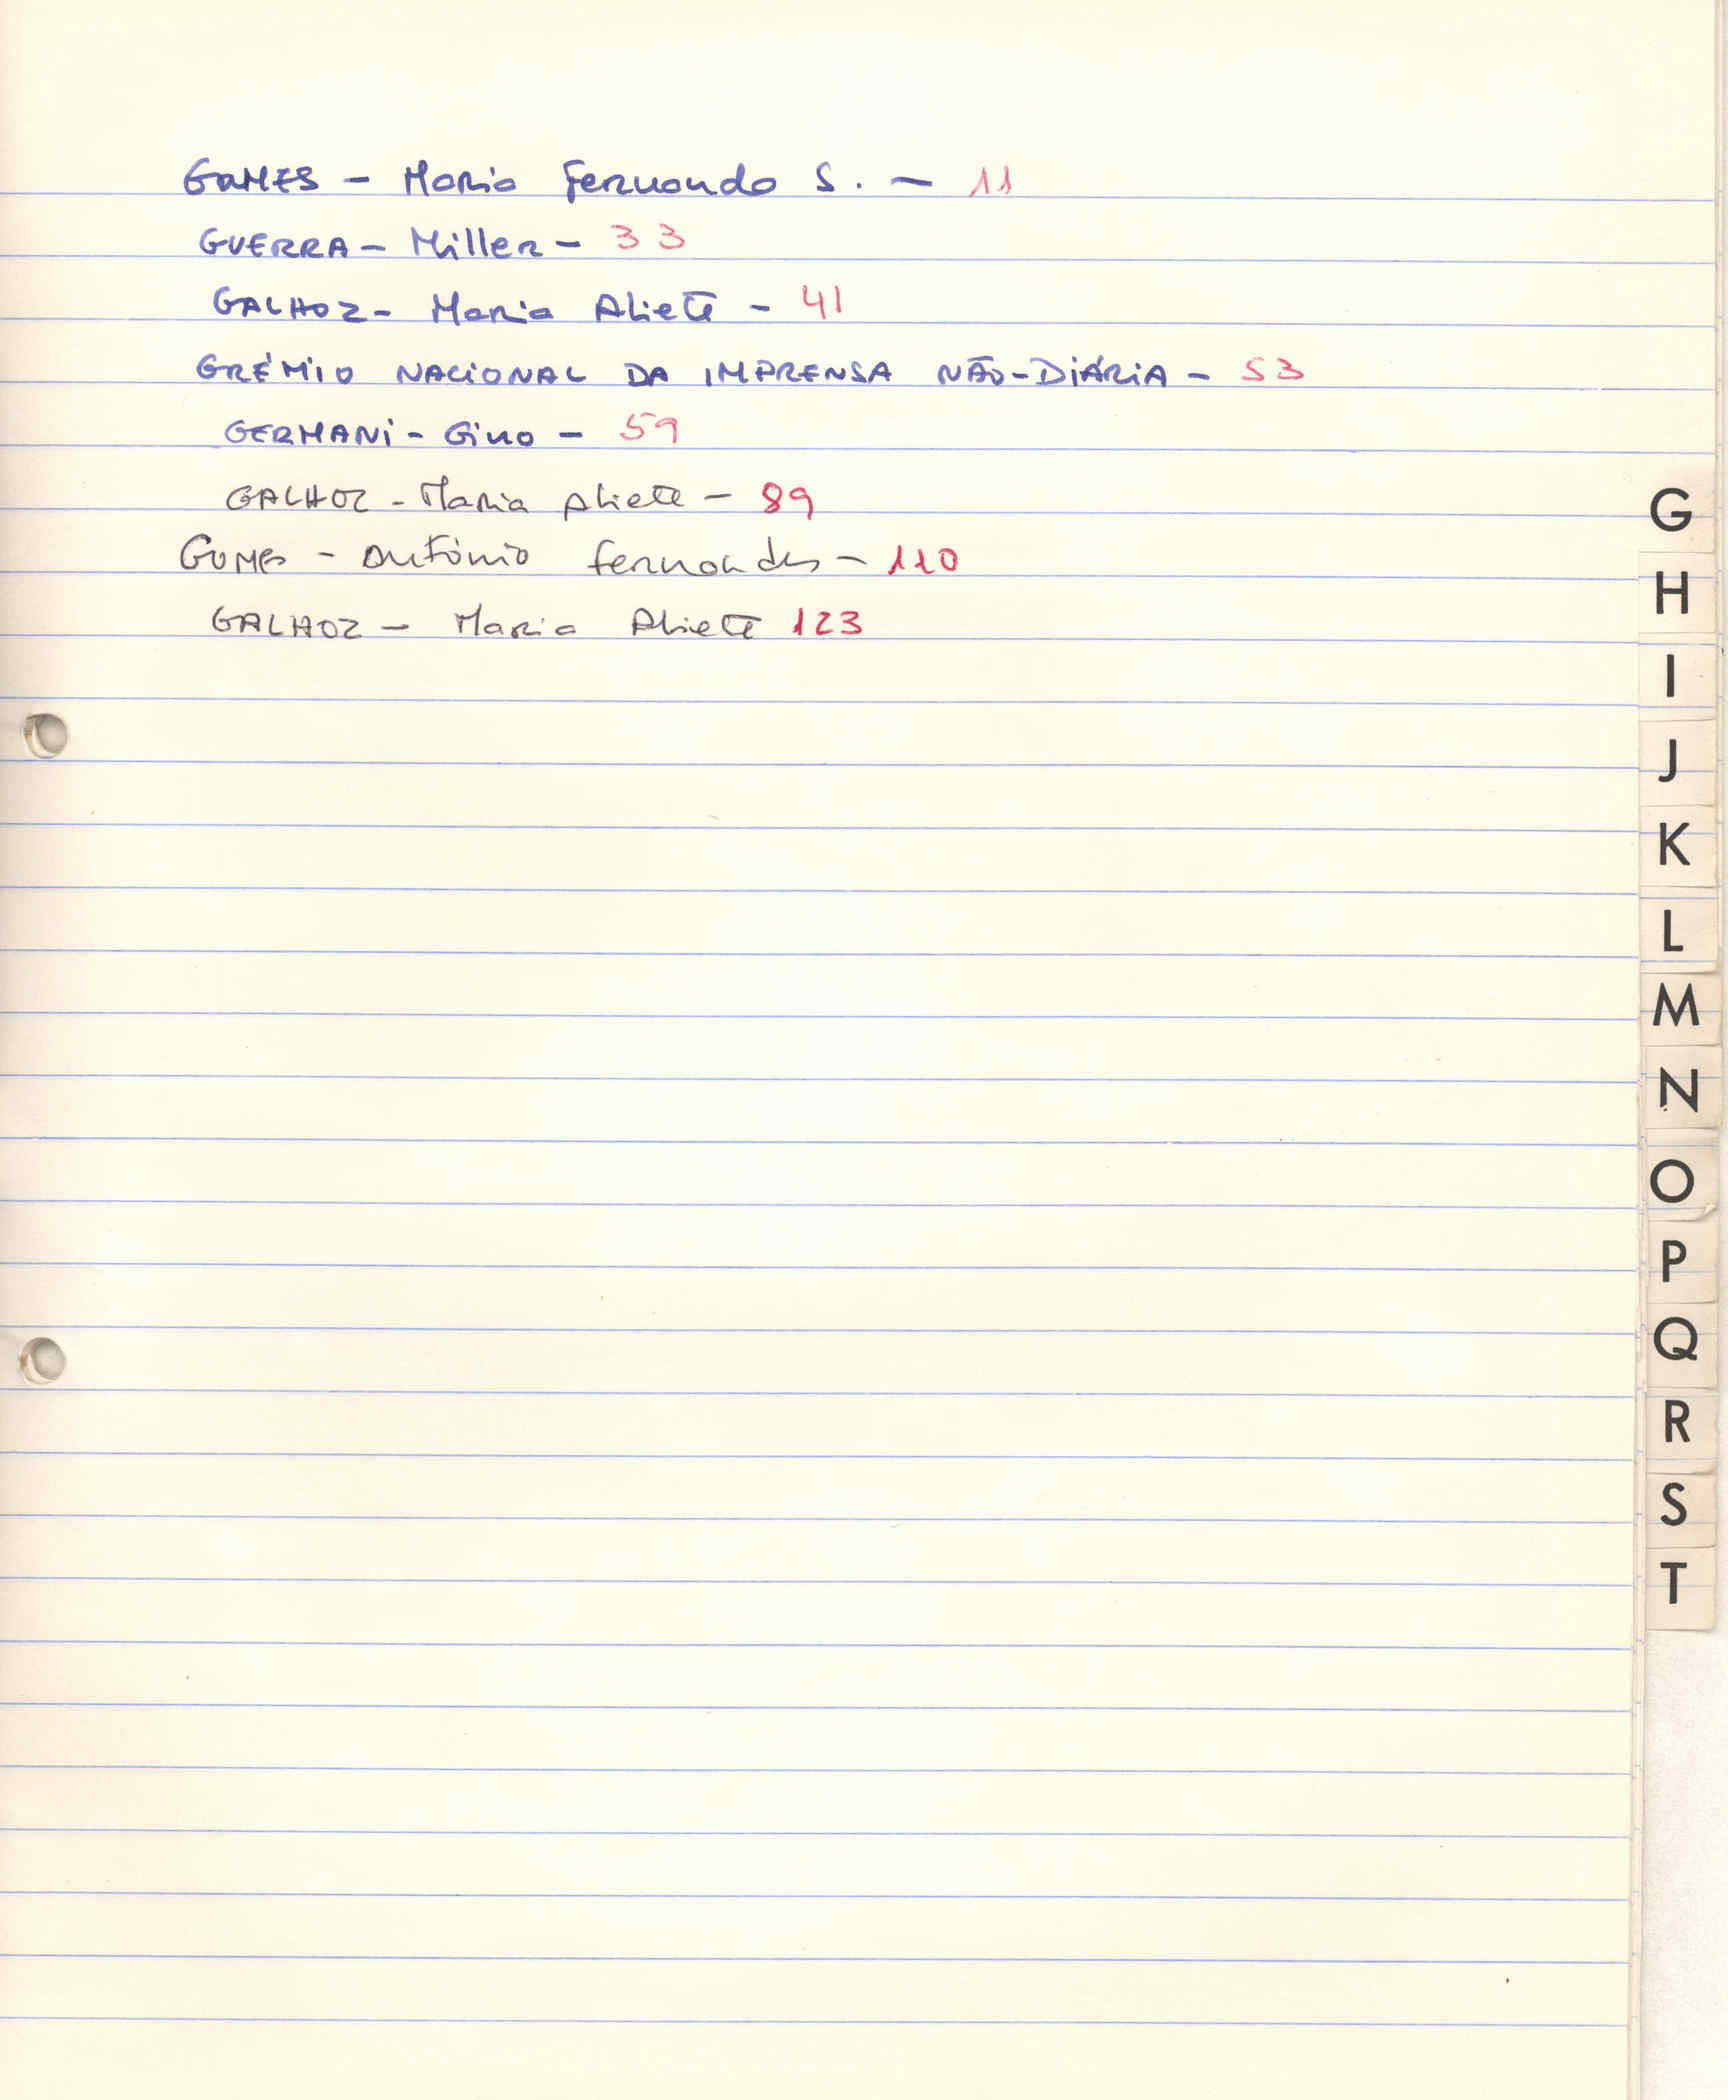 GOMES - Maria Fernanda S. - 11
GUERRA - Miller - 33
GALHOZ - Maria Aliete - 41
GRÉMIO NACIONAL DA IMPRENSA NÃO-DIÁRIA - 53
GERMANI - Gino - 59
GALHOZ - Maria Aliete - 89
GOMES - António Fernandes - 110
GALHOZ - Maria Aliete 123
G
H
I
J
K
L
M
N
O
P
Q
R
S
T